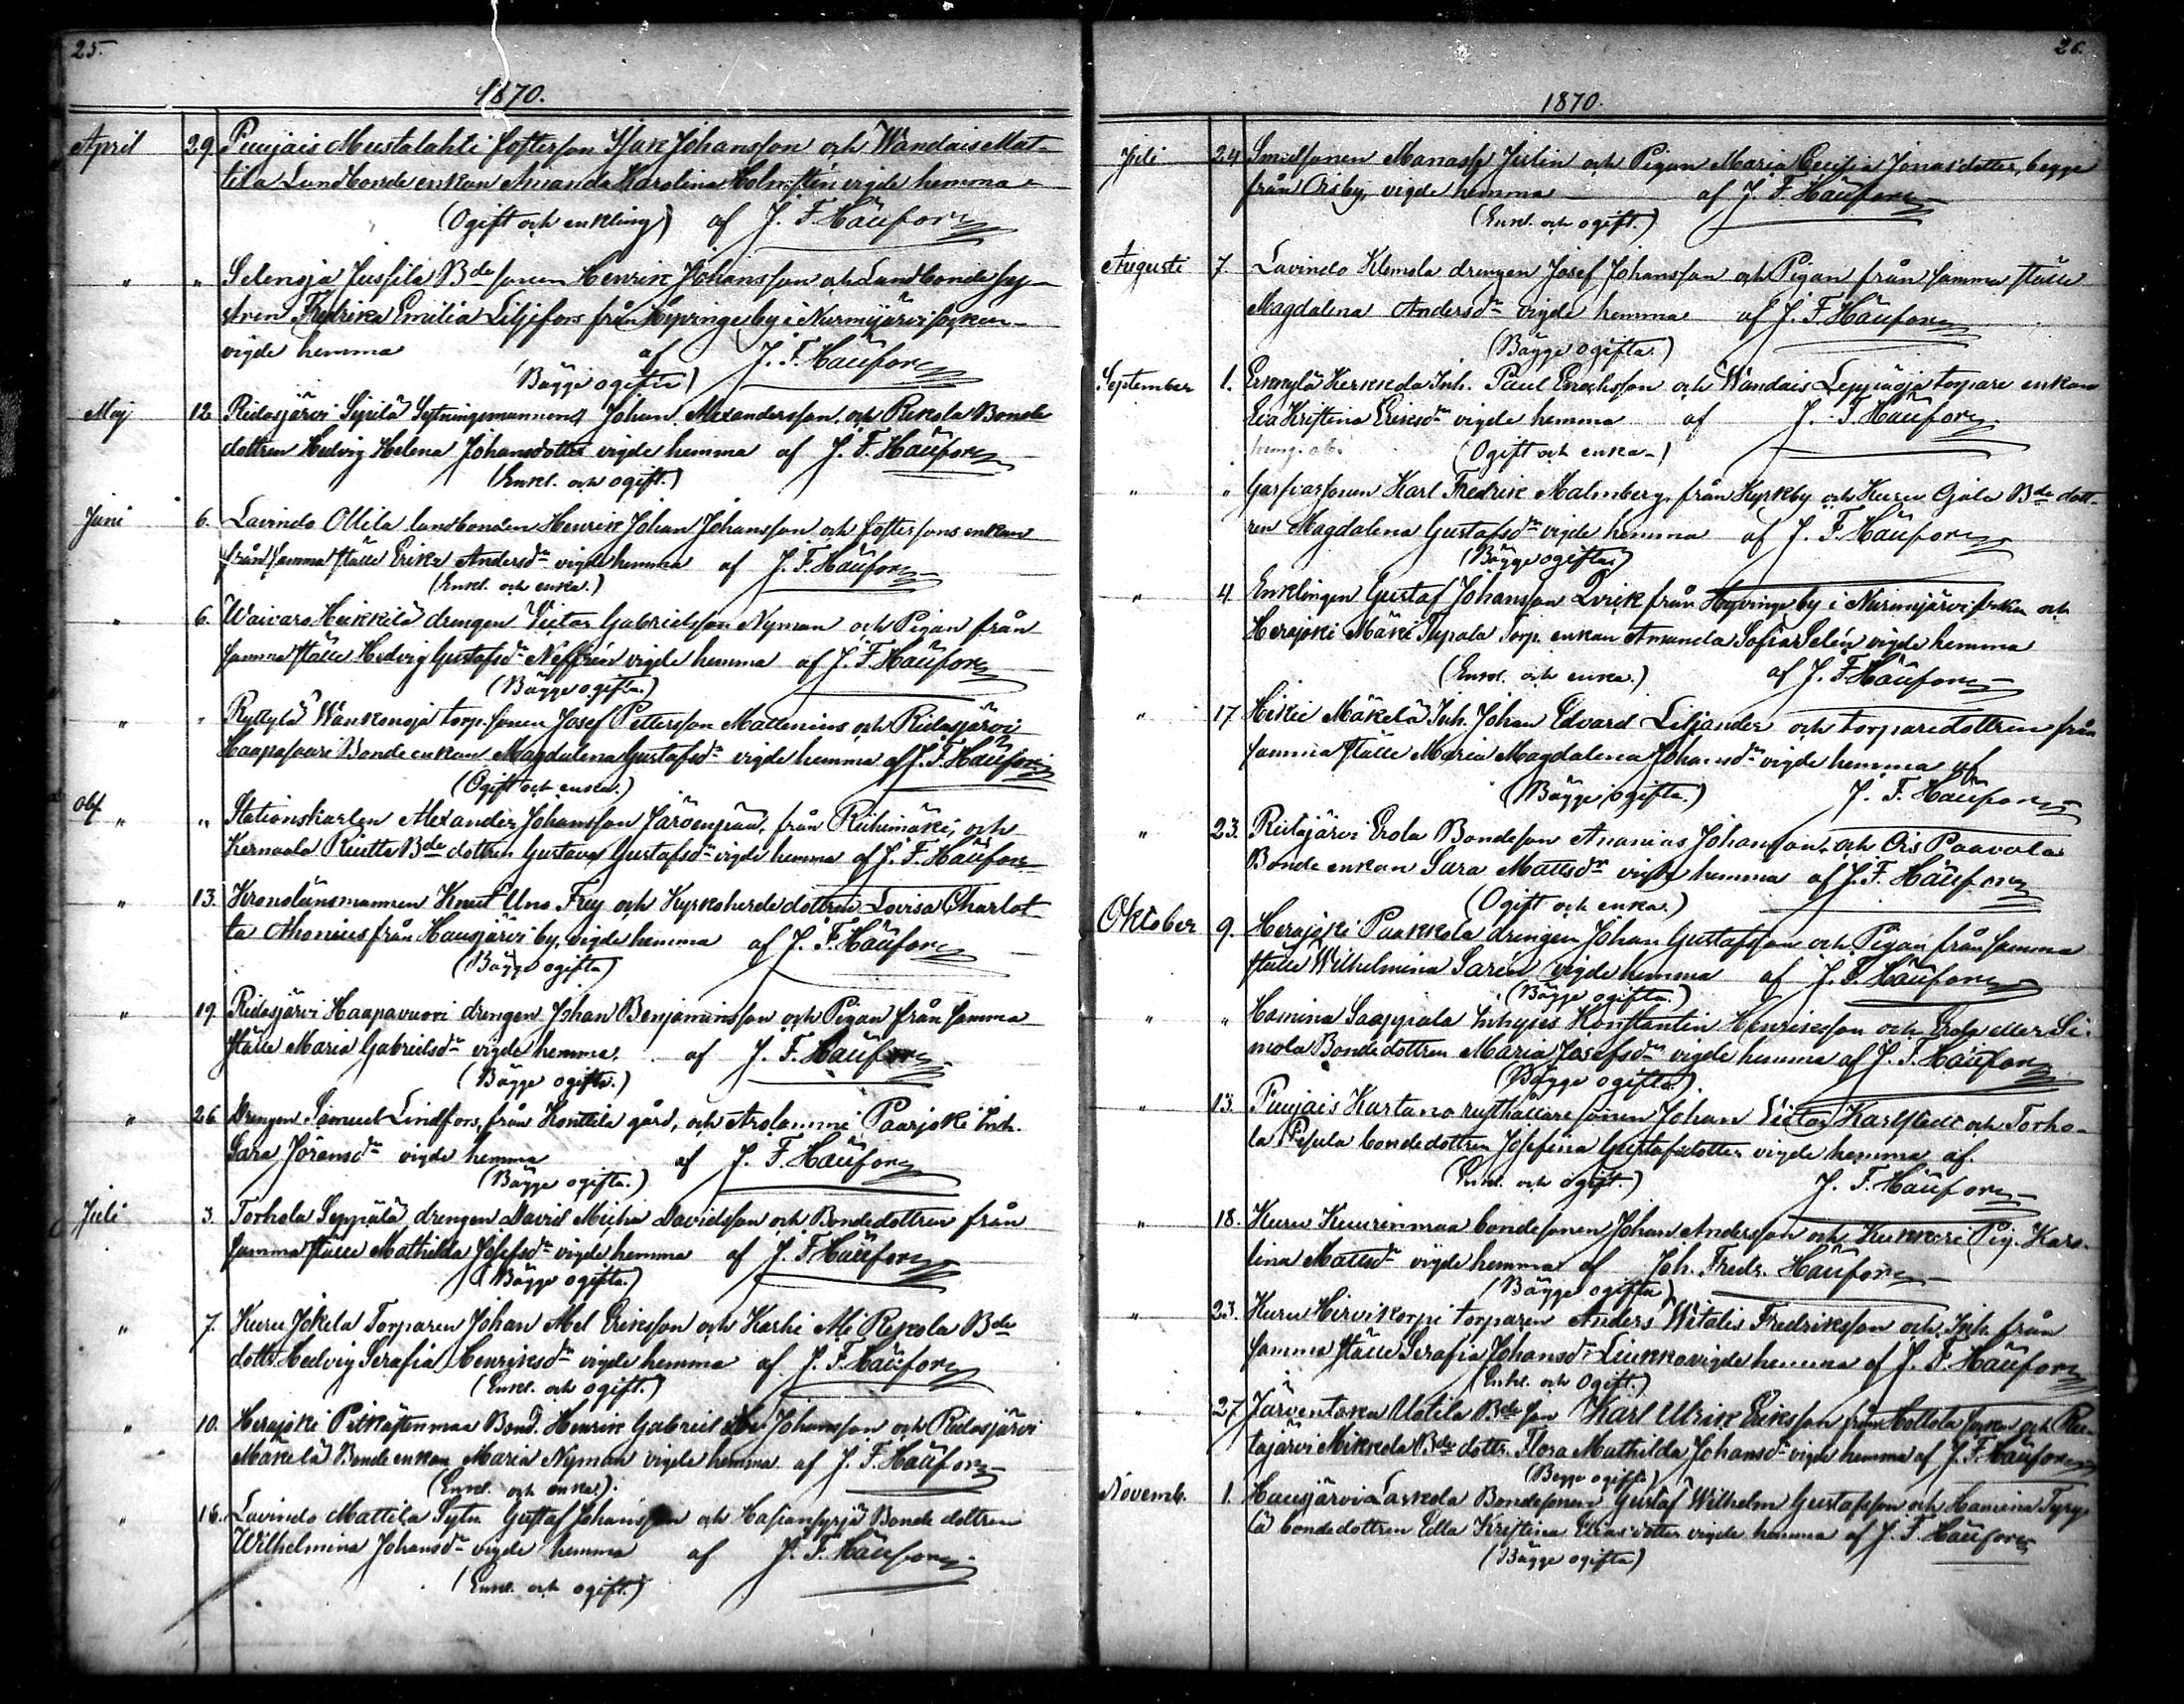 25.
1870.
April 29. Puujais Mustalahti Fosterson Isak Johansson och Wandais Mat-
tila Landbonde enkan Amanda Karolina Holmstén vigde hemma
(Ogift och enkling) af J. F. Häufors
" " Selensjä Jussila Bde sonen Henrik Johansson och Landbonde sy-
stren Fredrika Emilia Liljefors från Hyvinge by i Nurmijärvi socken
vigde hemma af J. F. Häufors
(Bägge ogifta)
Maj 12 Ridasjärvi Sipilä Sytningsmannen Johan Alexandersson och Rekola Bonde
dottren Hedvig Helena Johansdotter vigde hemma af J. F. Häufors
(Enkl. och ogift.)
Juni 6. Lavindo Ollila landbonden Henrik Johan Johansson och fostersons enkan
från samma ställe Erika Andersdr vigde hemma af J. F. Häufors
(Enkl. och enka.)
" 6. Waivaro Heikkilä drengen Victor Gabrielsson Nyman och Pigan från
samma ställe Hedvig Gustafsdr Neffrén vigde hemma af J. F. Häufors
(Bägge ogifta.)
" " Ryttylä Wankonoja torp. sonen Josef Pettersson Mattenius och Ridasjärvi
Haapasaari Bonde enkan Magdalena Gustafsdr vigde hemma af J. F. Häufors
(Ogift och enka.)
obs " " Stationskarlen Alexander Johansson Järvenpää, från Riihimäki, och
Kernaala Riutta Bde dottren Gustava Gustafsdr vigde hemma af J. F. Häufors
" 13. Kronolänsmannen Knut Uno Frey och Kyrkoherde dottren Lovisa Charlot-
ta Ahonius från Hausjärvi by, vigde hemma af J. F. Häufors
(Bägge ogifta)
" 19. Ridasjärvi Haapavuori drengen Johan Benjaminsson och Pigan från samma
ställe Maria Gabrielsdr vigde hemma. af J. F. Häufors
(Bägge ogifta.)
" 26 Drengen Samuel Lindfors, från Konttila gård, och Arolammi Paarjoki Inh.
Sara Jöransdr vigde hemma af J. F. Häufors
(Bägge ogifta.)
Juli 3. Torhola Seppälä drengen David Micha Davidsson och Bondedottren från
samma ställe Mathilda Josefsdr vigde hemma af J. F. Häufors
(Bägge ogifta.)
" 7. Kuru Jokela Torparen Johan Abel Eriksson och Karhi Ali Rekola Bde
dottr. Hedvig Serafia Henriksdr vigde hemma af J. F. Häufors
(Enkl. och ogift.)
" 10. Herajoki Pitkäsenmaa Bond. Henrik Gabriel Johansson och Ridasjärvi
Makelä Bonde enkan Maria Nyman vigde hemma af J. F. Häufors
(Enkl. och enka.)
" 16. Lavindo Mattila Sytn. Gustaf Johansson och Hasiansyrjä Bonde dottren
Wilhelmina Johansdr vigde hemma af J. F. Häufors
(Enkl. och ogift.)
26.
1870.
Juli 24 Smedsonen Manasse Jerlin och Pigan Maria Cecilia Jonasdotter, begge
från Oisby, vigde hemma af J. F. Häufors
(Enkl. och ogift.)
Augusti 7. Lavindo Klemola drengen Josef Johansson och Pigan från samma ställe
Magdalena Andersdr vigde hemma af J. F. Häufors
(Bägge ogifta.)
September 1. Erkkylä Kerkkola Inh. Paul Erichsson och Wandais Leppäoja torpare enkan
Eva Kristina Eriksdr vigde hemma af J. F. Häufors
(Ogift och enka)
" " Garfvarsonen Karl Fredrik Malmberg, från Kyrkby och Kuru Ojala Bde dott-
ren Magdalena Gustafsdr vigde hemma af J. F. Häufors
(Bägge ogifta)
" 4 Enklingen Gustaf Johansson Qvick från Hyvinge by i Nurmijärvi socken och
Herajoki Mäki Tupala Torp. enkan Amanda Sofia Selén vigde hemma
(Enkl. och enka.) af J. F. Häufors
" 17. Hikiä Mäkelä Inh. Johan Edvard Liljander och torparedottren från
samma ställe Maria Magdalena Johansdr vigde hemma af
(Bägge ogifta.) J. F. Häufors
" 23. Ridasjärvi Erola Bondeson Ananias Johansson, och Ois Paavola
Bonde enkan Sara Mattsdr vigde hemma af J. F. Häufors
(Ogift och enka.)
Oktober 9. Herajoki Paakkola drengen Johan Gustafsson och Pigan från samma
ställe Wilhelmina Sarén vigde hemma af J. F. Häufors
(Bägge ogifta.)
" " Hamina Saappala Inhyses Konstantin Henriksson och Erola eller Si-
mola Bondedottren Maria Josefsdr vigde hemma af J. F. Häufors
(Bägge ogifta)
" 13. Puujais Kartano rusthållare sonen Johan Victor Karlstedt och Torho-
la Pesula bondedottren Josefina Gustafsdotter vigde hemma af.
(Enkl. och ogift.) J. F. Häufors
" 18. Kuru Kuurinmaa bondesonen Johan Andersson och Kukkari Pig. Karo-
lina Mattsdr vigde hemma af Joh. Fredr. Häufors
(Bägge ogifta)
" 23. Kuru Hirvikorpi torparen Anders Witalis Fredriksson och Inh. från
samma ställe Serafia Johansdr Liukko vigde hemma af J. F. Häufors
(Enkl. och Ogift.)
" 27. Järventaka Uotila Bde son Karl Ulrik Eriksson från Hollola socken och Rii-
tajärvi Mikkola Bde dottr. Flora Mathilda Johansdr vigde hemma af J. F. Häufors
(Begge ogifta)
Novemb. 1. Hausjärvi Laskola Bondesonen Gustaf Wilhelm Gustafsson och Hamina Tyry-
lä bondedottren Edla Kristina Eliasdotter vigde hemma af J. F. Häufors
(Bägge ogifta)